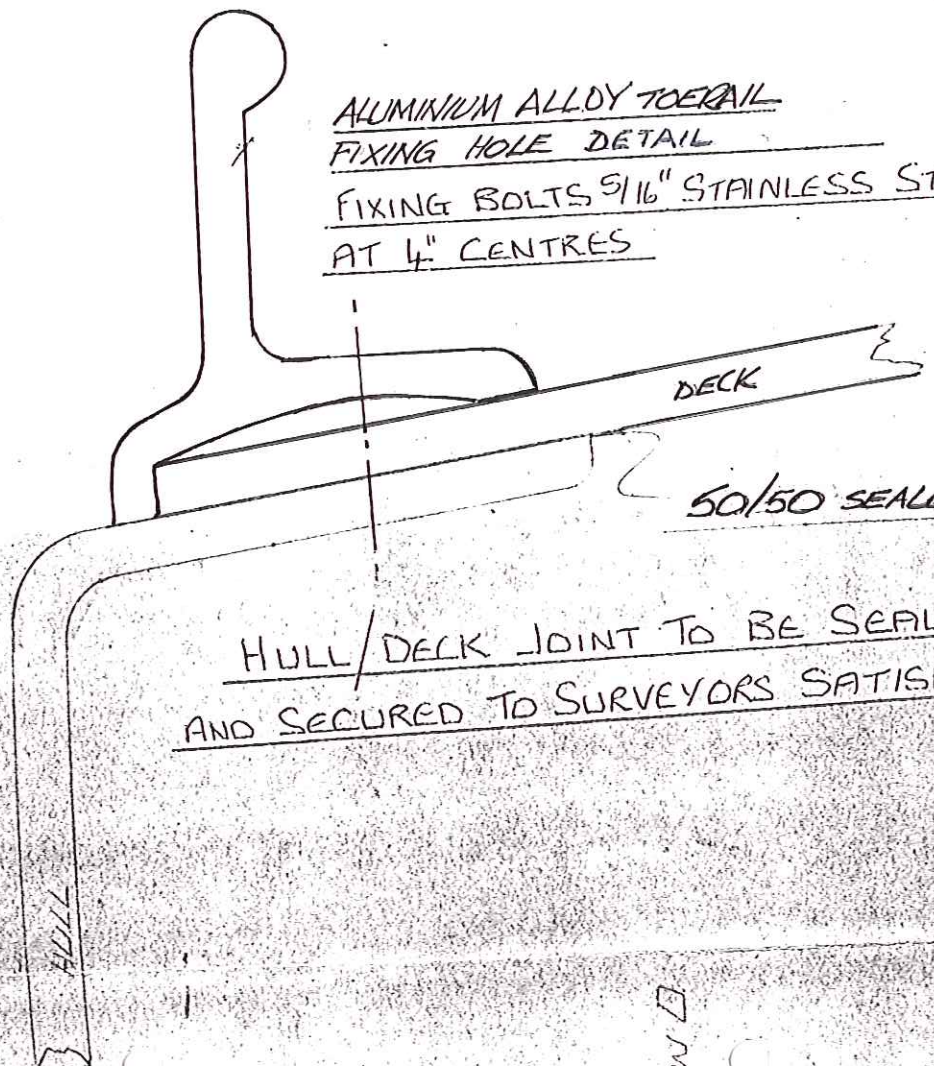 ALUMINIUM ALLOY TOERAIL
FIXING HOLE DETAIL
FIXING BOLTS 5/16" STAINLESS ST
AT 4" CENTRES
DECK
50/50 SEAL
HULL/DECK JOINT TO BE SEAL
AND SECURED TO SURVEYORS SATIS
HULL